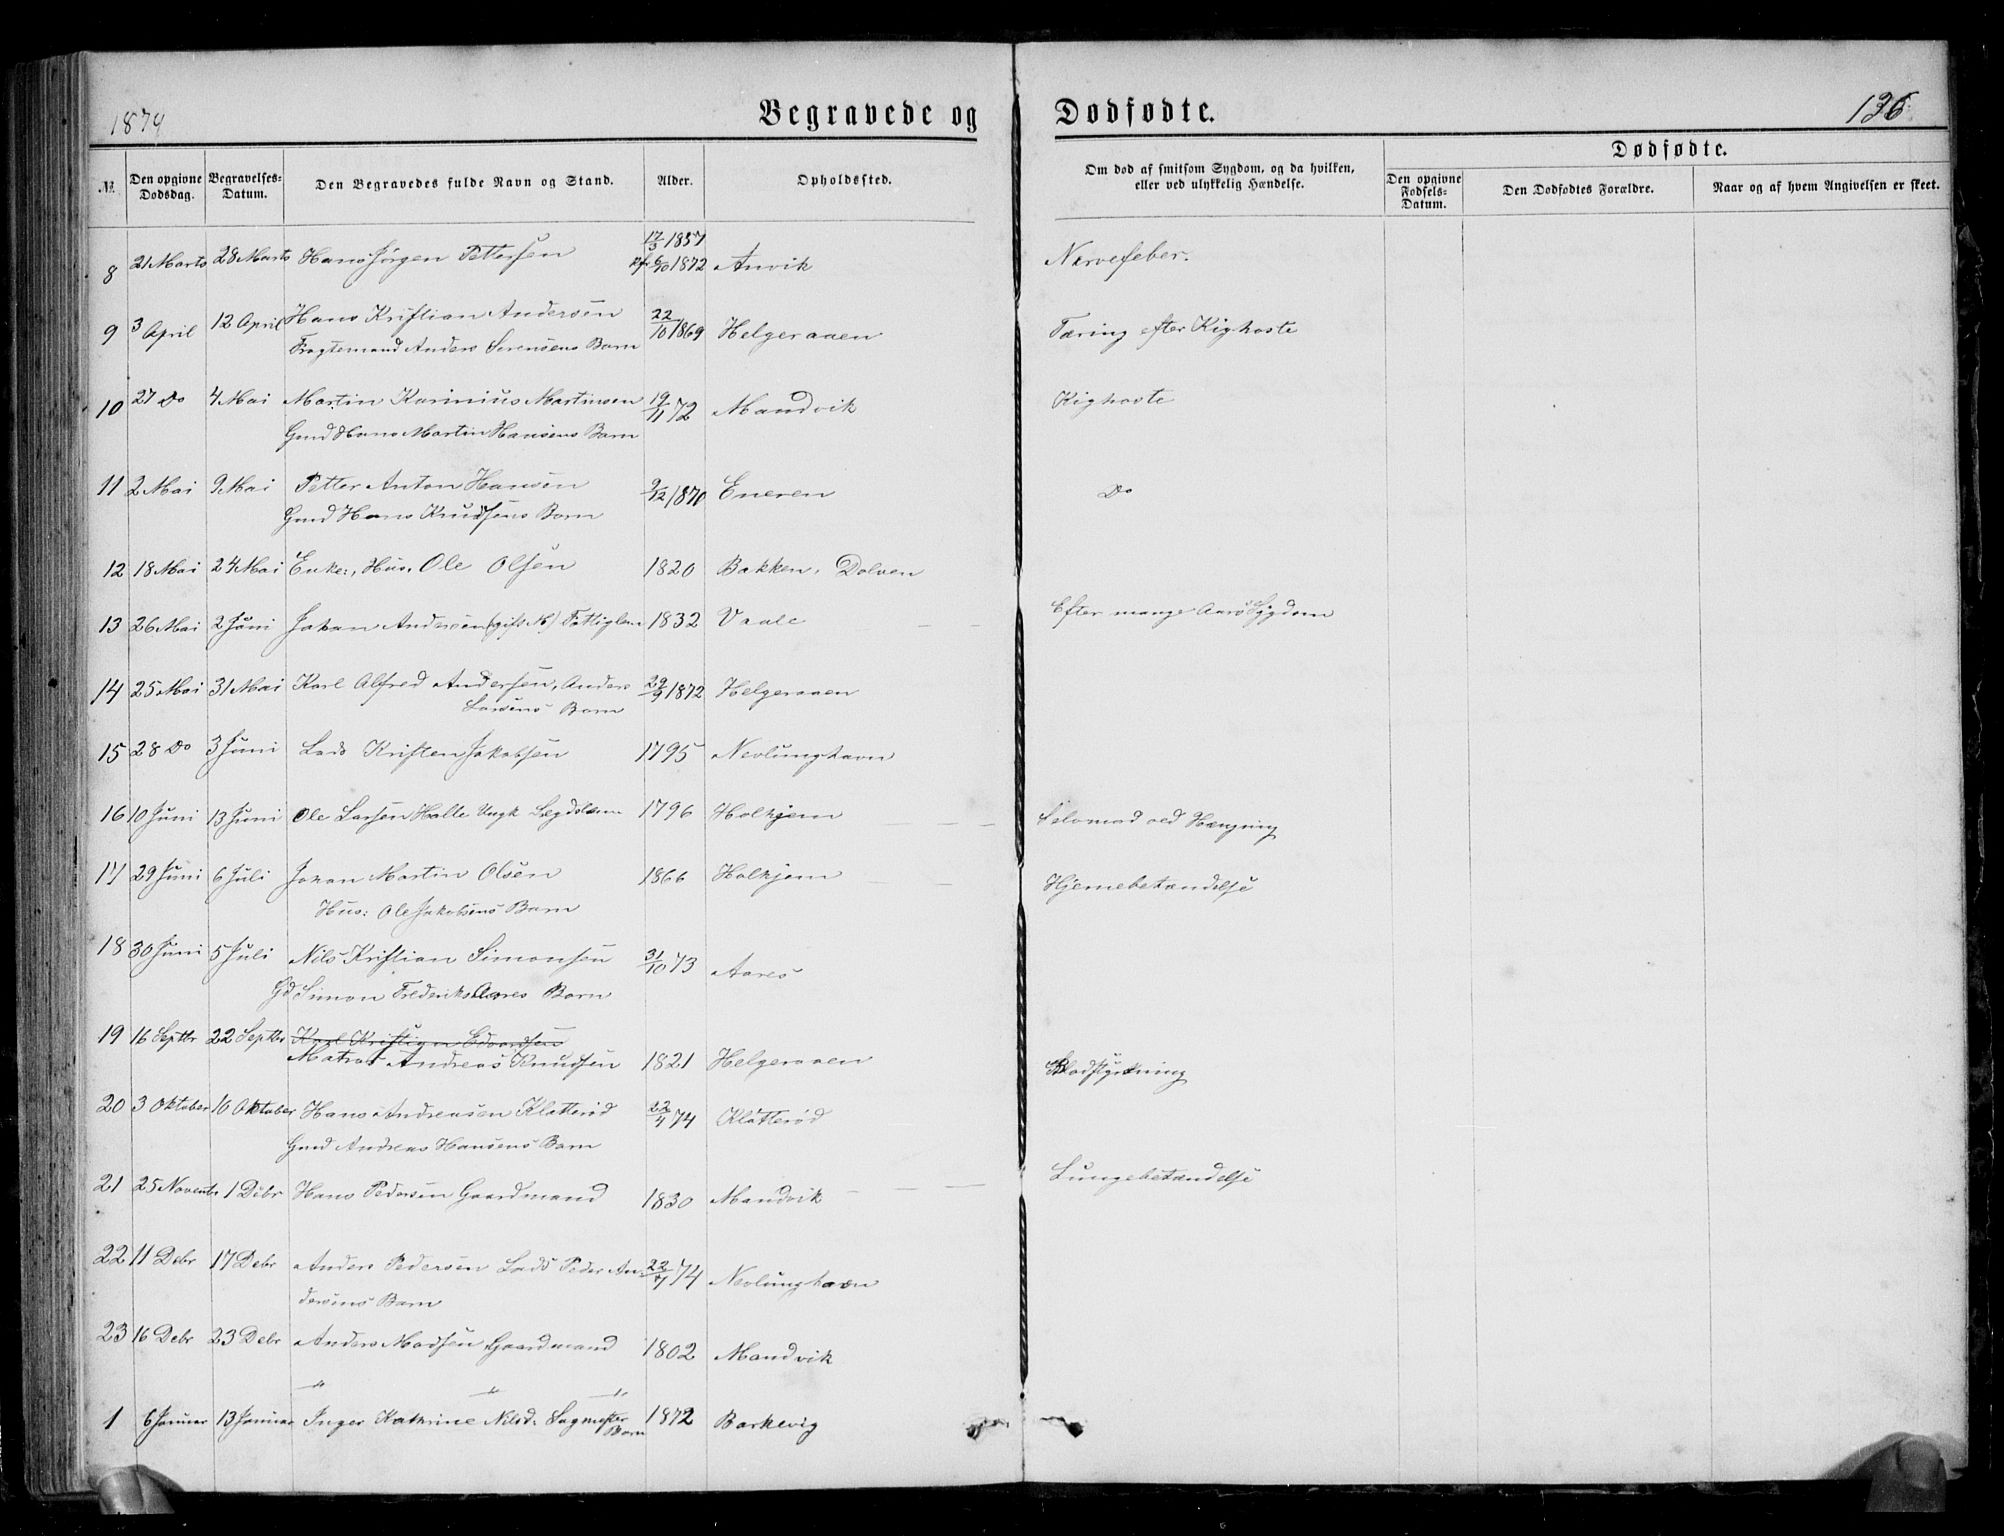 1874
Begravede og Dødfødte.
136
№.
Den opgivne Dødsdag.
Begravelses-Datum.
Den Begravedes fulde Navn og Stand.
Alder.
Opholdssted.
Om død af smitsom Sygdom, og da hvilken, eller ved ulykkelig Hændelse.
Dødfødte.
Den opgivne Fødsels-Datum.
Den Dødfødtes Forældre.
Naar og af hvem Angivelsen er skeet.
8 21 Marts 28 Marts Hans Jørgen Pettersen 17/3 1857 6/10 1872 Anvik Nervefeber.
9 3 April 12 April Hans Kristian Andersen 22/10 1869 Helgeraaen Tæring efter Kighoste
Fragtemand Anders Sørensens Barn
10 27 Do 4 Mai Martin Karinius Martinsen 19/11 72 Mandvik Kighoste
Gmd Hans Martin Hansens Barn
11 2 Mai 9 Mai Petter Anton Hansen 9/12 1870 Eneren Do
Gmd Hans Knudsens Barn
12 18 Mai 24 Mai Enke:, Hus. Ole Olsen 1820 Bakken, Dolven
13 26 Mai 2 Juni Johan Andersen (gift M) Fattiglem 1832 Vaale Efter mange Aars Sygdom
14 25 Mai 31 Mai Karl Alfred Andersen, Anders 29/9 1872 Helgeraaen
Larsens Barn
15 28 Do 3 Juni Lods Kristen Jakobsen 1795 Nevlunghavn
16 10 Juni 13 Juni Ole Larsen Halle Ungk Lægdslem 1796 Holkjem Selvmord ved Hængning
17 29 Juni 6 Juli Johan Martin Olsen 1866 Holkjem Hjernebetændelse
Hus: Ole Jakobsens Barn
18 30 Juni 5 Juli Nils Kristian Simonsen 31/10 73 Aares
Gd Simon Frederiks Aares Barn
19 16 Septbr 22 Septbr Karl Kristian Edvardsen
Matros Andreas Knudsen 1821 Helgeraaen Blodstyrtning
20 3 Oktober 10 Oktober Hans Andreasen Klåtterød 22/4 74 Klåtterød
Gmd Andreas Hansens Barn
21 25 Novembr 1 Debr Hans Pedersen Gaardmand 1830 Mandvik Lungebetændelse
22 11 Debr 17 Debr Anders Pedersen Lods Peder An- 22/7 74 Nevlunghavn
dersens Barn
23 16 Debr 23 Debr Anders Madsen Gaardmand 1802 Mandvik
1 6 Januar 13 Januar Inger Kathrine Nilsd: Sagmester 1872 Barkevig
Barn